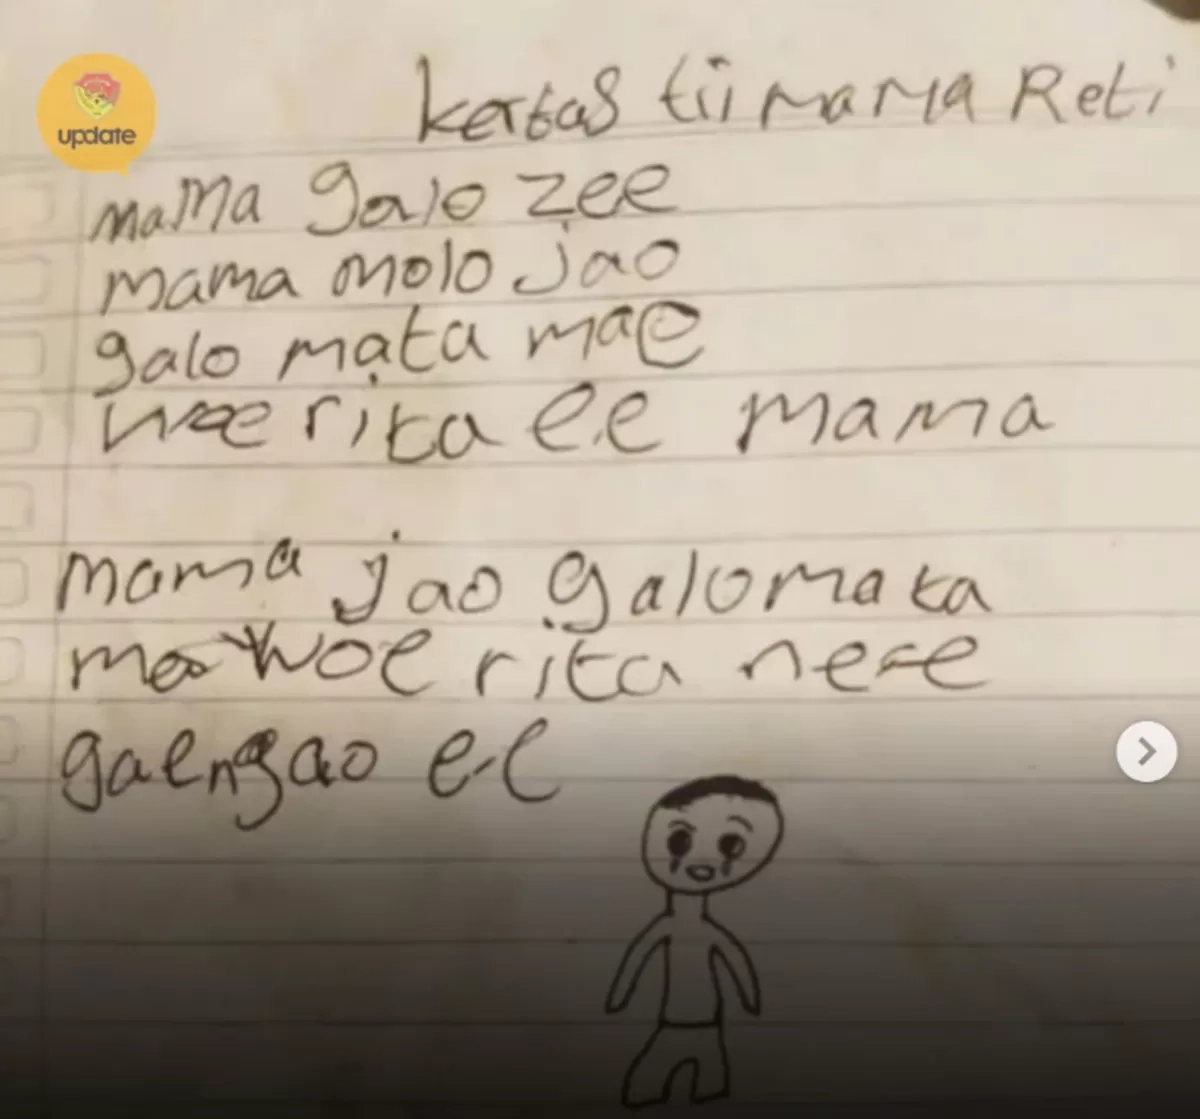 update
kertas tii mama Reti
mama galo zee
mama molo jao
galo mata mae
woe rita ee mama
mama jao galo mata
mae woe rita ne e e
gaengao ee